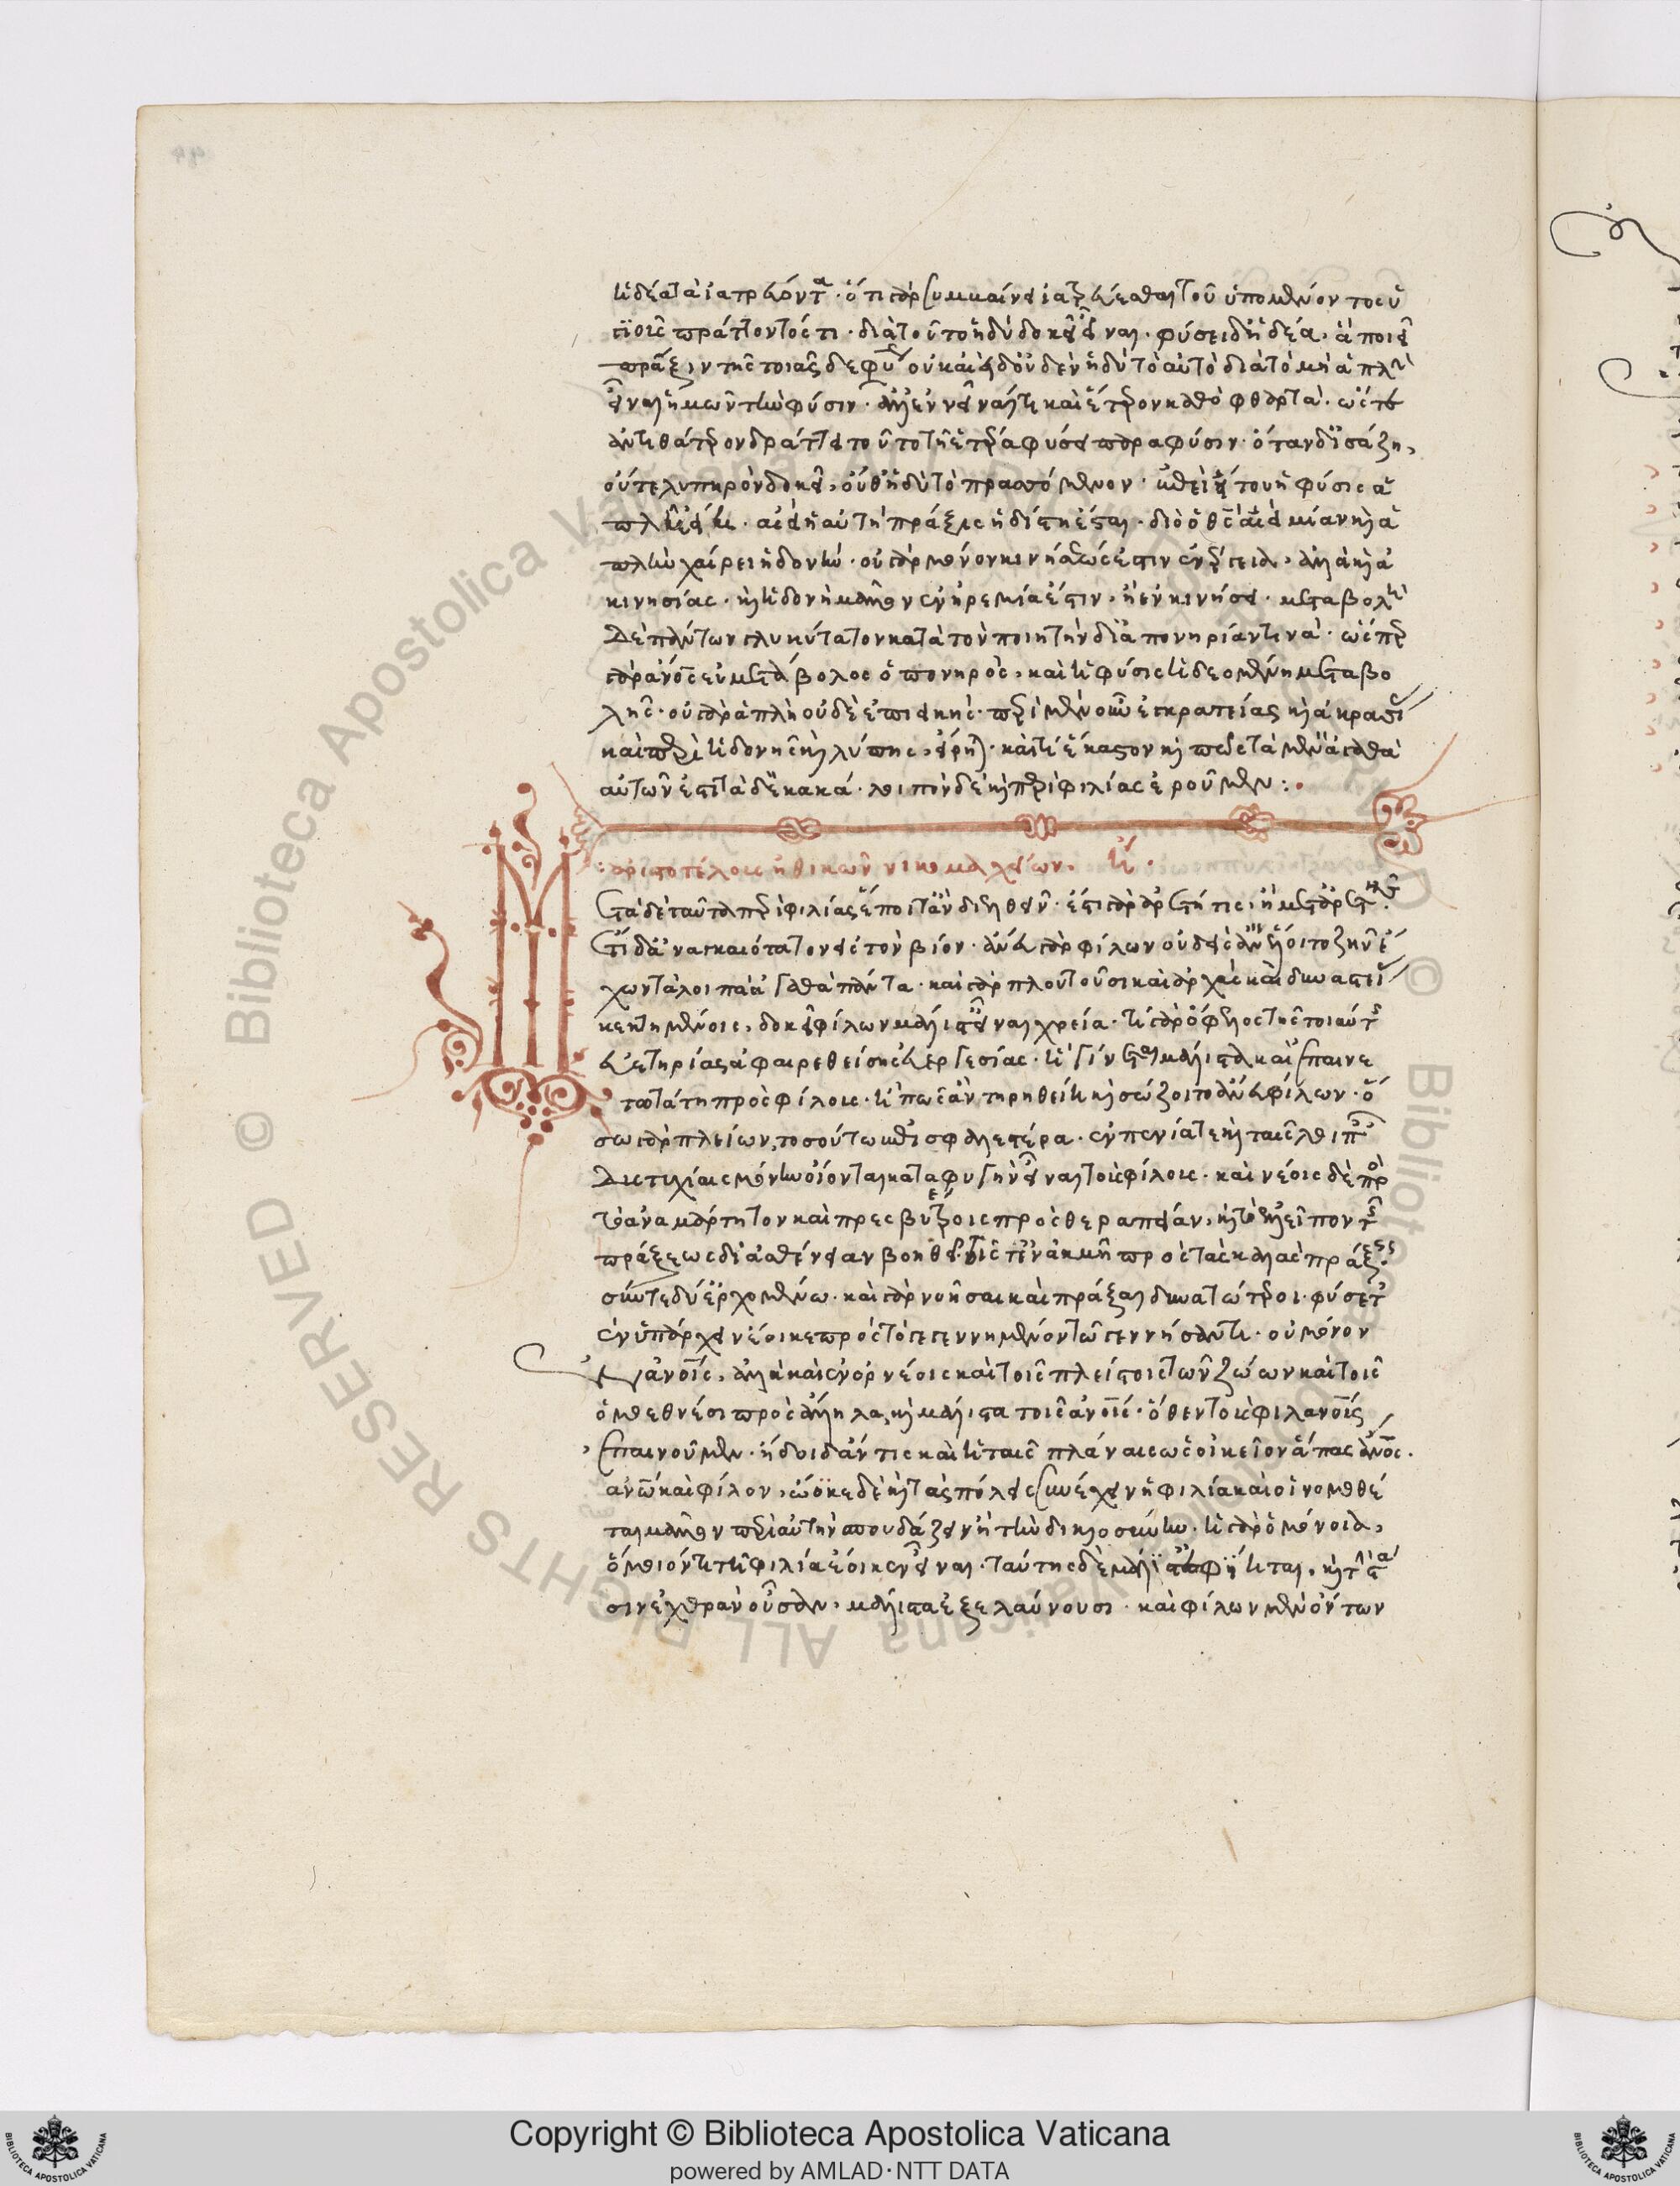 ἡδέα τὰ ἰατρεύοντα · ὅτι γὰρ συμβαίνει ἰατρεύεσθαι τοῦ ὑπομένοντος ὑ
γιοῦς πράττοντός τι · διὰ τοῦτο ἡδὺ δοκεῖ εἶναι · φύσει δὲ ἡδέα, ἃ ποιεῖ
πρᾶξιν τῆς τοιᾶσδε φύσεως · οὐκ ἀεὶ δ' οὐδὲν ἡδὺ τὸ αὐτὸ διὰ τὸ μὴ ἁπλῆν
εἶναι ἡμῶν τὴν φύσιν · ἀλλ' ἐνεῖναί τι καὶ ἕτερον καθὸ φθαρτά · ὥστε
ἄν τι θάτερον πράττει τοῦτο τῇ ἑτέρᾳ φύσει παρὰ φύσιν · ὅταν δ' ἰσάζῃ,
οὔτε λυπηρὸν δοκεῖ, οὔθ' ἡδὺ τὸ πραττόμενον · ἐπεὶ εἴ του ἡ φύσις ἁ
πλῆ εἴη · ἀεὶ ἡ αὐτὴ πρᾶξις ἡδίστη ἔσται · διὸ ὁ θεὸς ἀεὶ μίαν καὶ ἁ
πλῆν χαίρει ἡδονήν · οὐ γὰρ μόνον κινήσεώς ἐστιν ἐνέργεια, ἀλλὰ καὶ ἀ
κινησίας · καὶ ἡδονὴ μᾶλλον ἐν ἠρεμίᾳ ἐστὶν, ἢ ἐν κινήσει · μεταβολὴ
δὲ πάντων γλυκύτατον κατὰ τὸν ποιητὴν διὰ πονηρίαν τινά · ὥσπερ
γὰρ ἄνος εὐμετάβολος ὁ πονηρός, καὶ ἡ φύσις ἡ δεομένη μεταβο
λῆς · οὐ γὰρ ἁπλῆ οὐδὲ ἐπιεικής · περὶ μὲν οὖν ἐγκρατείας καὶ ἀκρασίας
καὶ περὶ ἡδονῆς καὶ λύπης, εἴρηται · καὶ τί ἕκαστον καὶ πῶς τὰ μὲν ἀγαθὰ
αὐτῶν ἐστὶ τὰ δὲ κακά · λοιπὸν δὲ καὶ περὶ φιλίας ἐροῦμεν :·
: ἀριστοτέλους ἠθικῶν νικομαχείων · η ·
Μετὰ δὲ ταῦτα περὶ φιλίας ἕποιτ' ἂν διελθεῖν · ἔστι γὰρ ἀρετή τις, ἢ μετ' ἀρετῆς ·
ἔτι δ' ἀναγκαιότατον εἰς τὸν βίον · ἄνευ γὰρ φίλων οὐδεὶς ἂν ἕλοιτο ζῆν ἔ
χων τὰ λοιπὰ ἀγαθὰ πάντα · καὶ γὰρ πλουτοῦσι καὶ ἀρχὰς καὶ δυναστείας
κεκτημένοις, δοκεῖ φίλων μάλιστ' εἶναι χρεία · τί γὰρ ὄφελος τῆς τοιαύτης
εὐετηρίας ἀφαιρεθείσης εὐεργεσίας · ἣ γίνεται μάλιστα καὶ ἐπαινε
τωτάτη πρὸς φίλους · ἢ πῶς ἂν τηρηθείη καὶ σώζοιτο ἄνευ φίλων · ὅ
σῳ γὰρ πλείων, τοσούτῳ ἐπισφαλεστέρα · ἐν πενίᾳ τε καὶ ταῖς λοιπαῖς
δυστυχίαις μόνην οἴονται καταφυγὴν εἶναι τοὺς φίλους · καὶ νέοις δὲ πρὸς
τὸ ἀναμάρτητον καὶ πρεσβυτέροις πρὸς θεραπείαν, καὶ τὸ ἐλλεῖπον τῆς
πράξεως δι' ἀσθένειαν βοηθεῖ · τοῖς τ' ἐν ἀκμῇ πρὸς τὰς καλὰς πράξεις ·
σύν τε δύ' ἐρχομένω · καὶ γὰρ νοῆσαι καὶ πρᾶξαι δυνατώτεροι · φύσει τ'
ἐνυπάρχειν ἔοικε πρὸς τὸ γεγεννημένον τῷ γεννήσαντι · οὐ μόνον
ἐν ἀνοις, ἀλλὰ καὶ ἐν ὀρνέοις καὶ τοῖς πλείστοις τῶν ζώων καὶ τοῖς
ὁμοεθνέσι πρὸς ἄλληλα, καὶ μάλιστα τοῖς ἀνοις · ὅθεν τοὺς φιλανους
ἐπαινοῦμεν · ἴδοι δ' ἄν τις καὶ ἐν ταῖς πλάναις ὡς οἰκεῖον ἅπας ἄνος
ἀνω καὶ φίλον, ἔοικε δὲ καὶ τὰς πόλεις συνέχειν ἡ φιλία καὶ οἱ νομοθέ
ται μᾶλλον περὶ αὐτὴν σπουδάζειν ἢ τὴν δικαιοσύνην · ἡ γὰρ ὁμόνοια,
ὅμοιόν τι τῇ φιλίᾳ ἔοικεν εἶναι · ταύτης δὲ μάλιστ' ἐφίενται, καὶ τὴν στά
σιν ἔχθραν οὖσαν, μάλιστα ἐξελαύνουσι · καὶ φίλων μὲν ὄντων
Copyright © Biblioteca Apostolica Vaticana
powered by AMLAD·NTT DATA